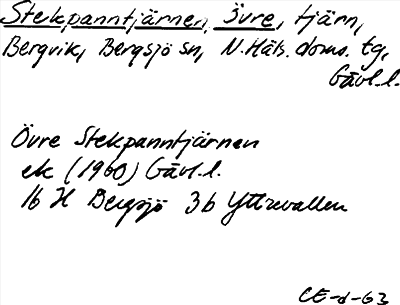 Stekpanntjärnen, Övre, tjärn,
Bergvik, Bergsjö sn, N. Häls. doms. tg,
Gävl. l.
Övre Stekpanntjärnen
ek (1960) Gävl. l.
16 H Bergsjö 3b Yttrevallen
CE-d-63